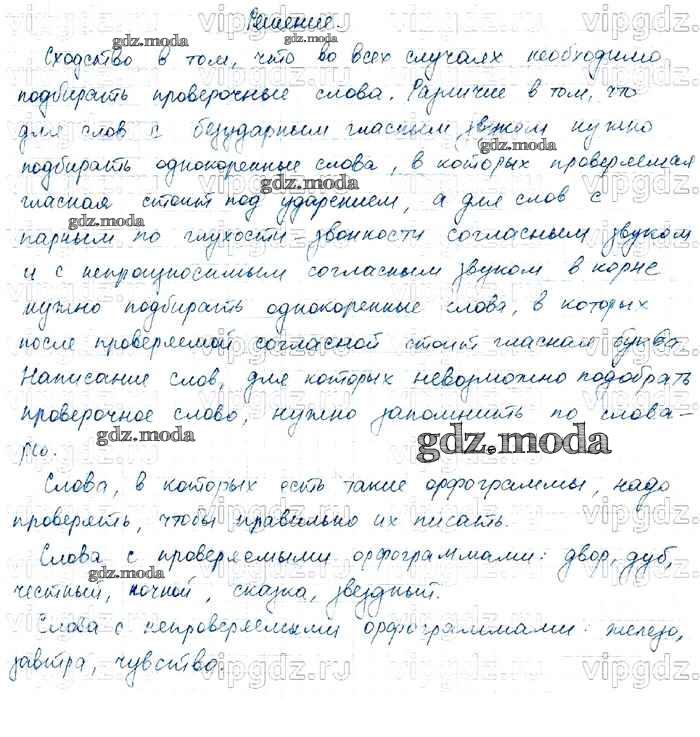 Решение.
Сходство в том, что во всех случаях необходимо
подбирать проверочные слова. Различие в том, что
для слов с безударным гласным звуком нужно
подбирать однокоренные слова, в которых проверяемая
гласная стоит под ударением, а для слов с
парным по глухости звонкости согласным звуком
и с непроизносимым согласным звуком в корне
нужно подбирать однокоренные слова, в которых
после проверяемой согласной стоит гласная буква.
Написание слов, для которых невозможно подобрать
проверочное слово, нужно запомнить по слова-
рю.
Слова, в которых есть такие орфограммы, надо
проверять, чтобы правильно их писать.
Слова с проверяемыми орфограммами: двор, дуб,
честный, ночной, сказка, звездный.
Слова с непроверяемыми орфограммами: железо,
завтра, чувство.
gdz.moda
gdz.moda
gdz.moda
gdz.moda
gdz.moda
gdz.moda
gdz.moda
gdz.moda
gdz.moda
gdz.moda
vipgdz.ru